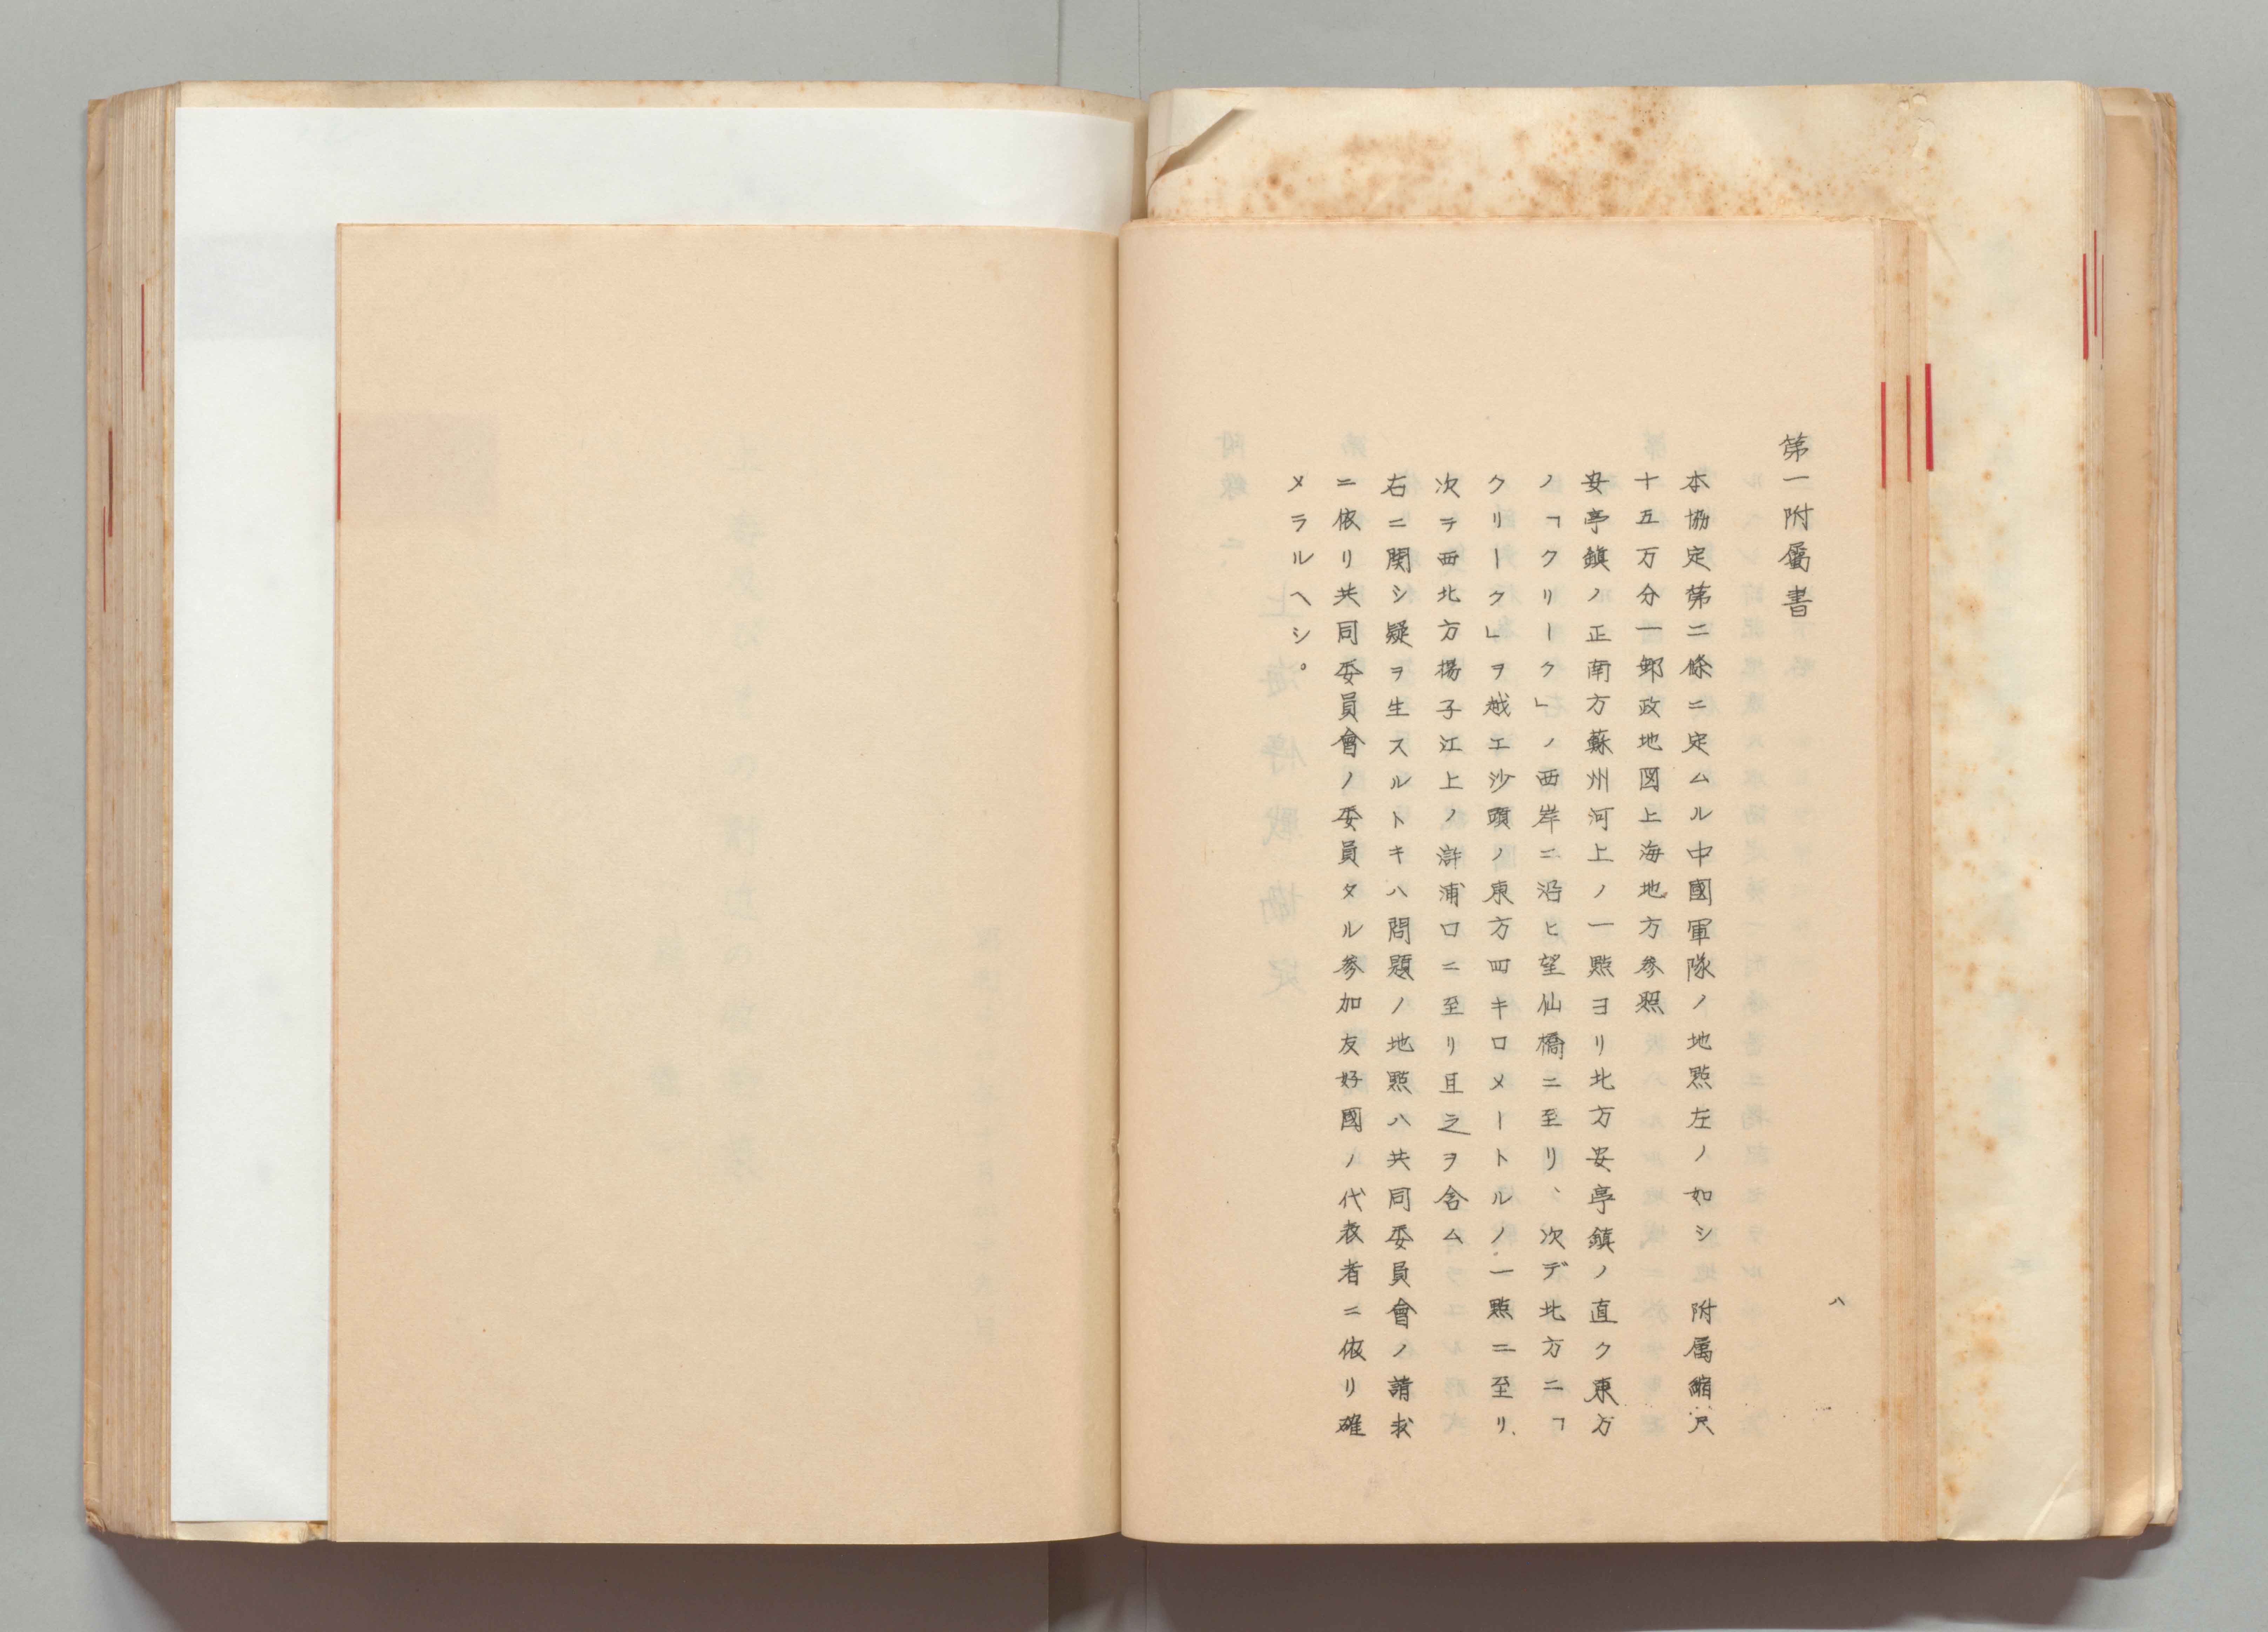 八
第一附属書
本協定第二條ニ定ムル中國軍隊ノ地點左ノ如シ 附属縮尺
十五万分一郵政地図上海地方参照
安亭鎮ノ正南方蘇州河上ノ一點ヨリ北方安亭鎮ノ直ク東方
ノ「クリーク」ノ西岸ニ沿ヒ望仙橋ニ至リ、次デ北方ニ「
クリーク」ヲ越エ沙頭ノ東方四キロメートルノ一點ニ至リ、
次テ西北方揚子江上ノ滸浦口ニ至リ且之ヲ含ム
右ニ関シ疑ヲ生スルトキハ問題ノ地點ハ共同委員會ノ請求
ニ依リ共同委員會ノ委員タル参加友好國ノ代表者ニ依リ確
メラルヘシ。